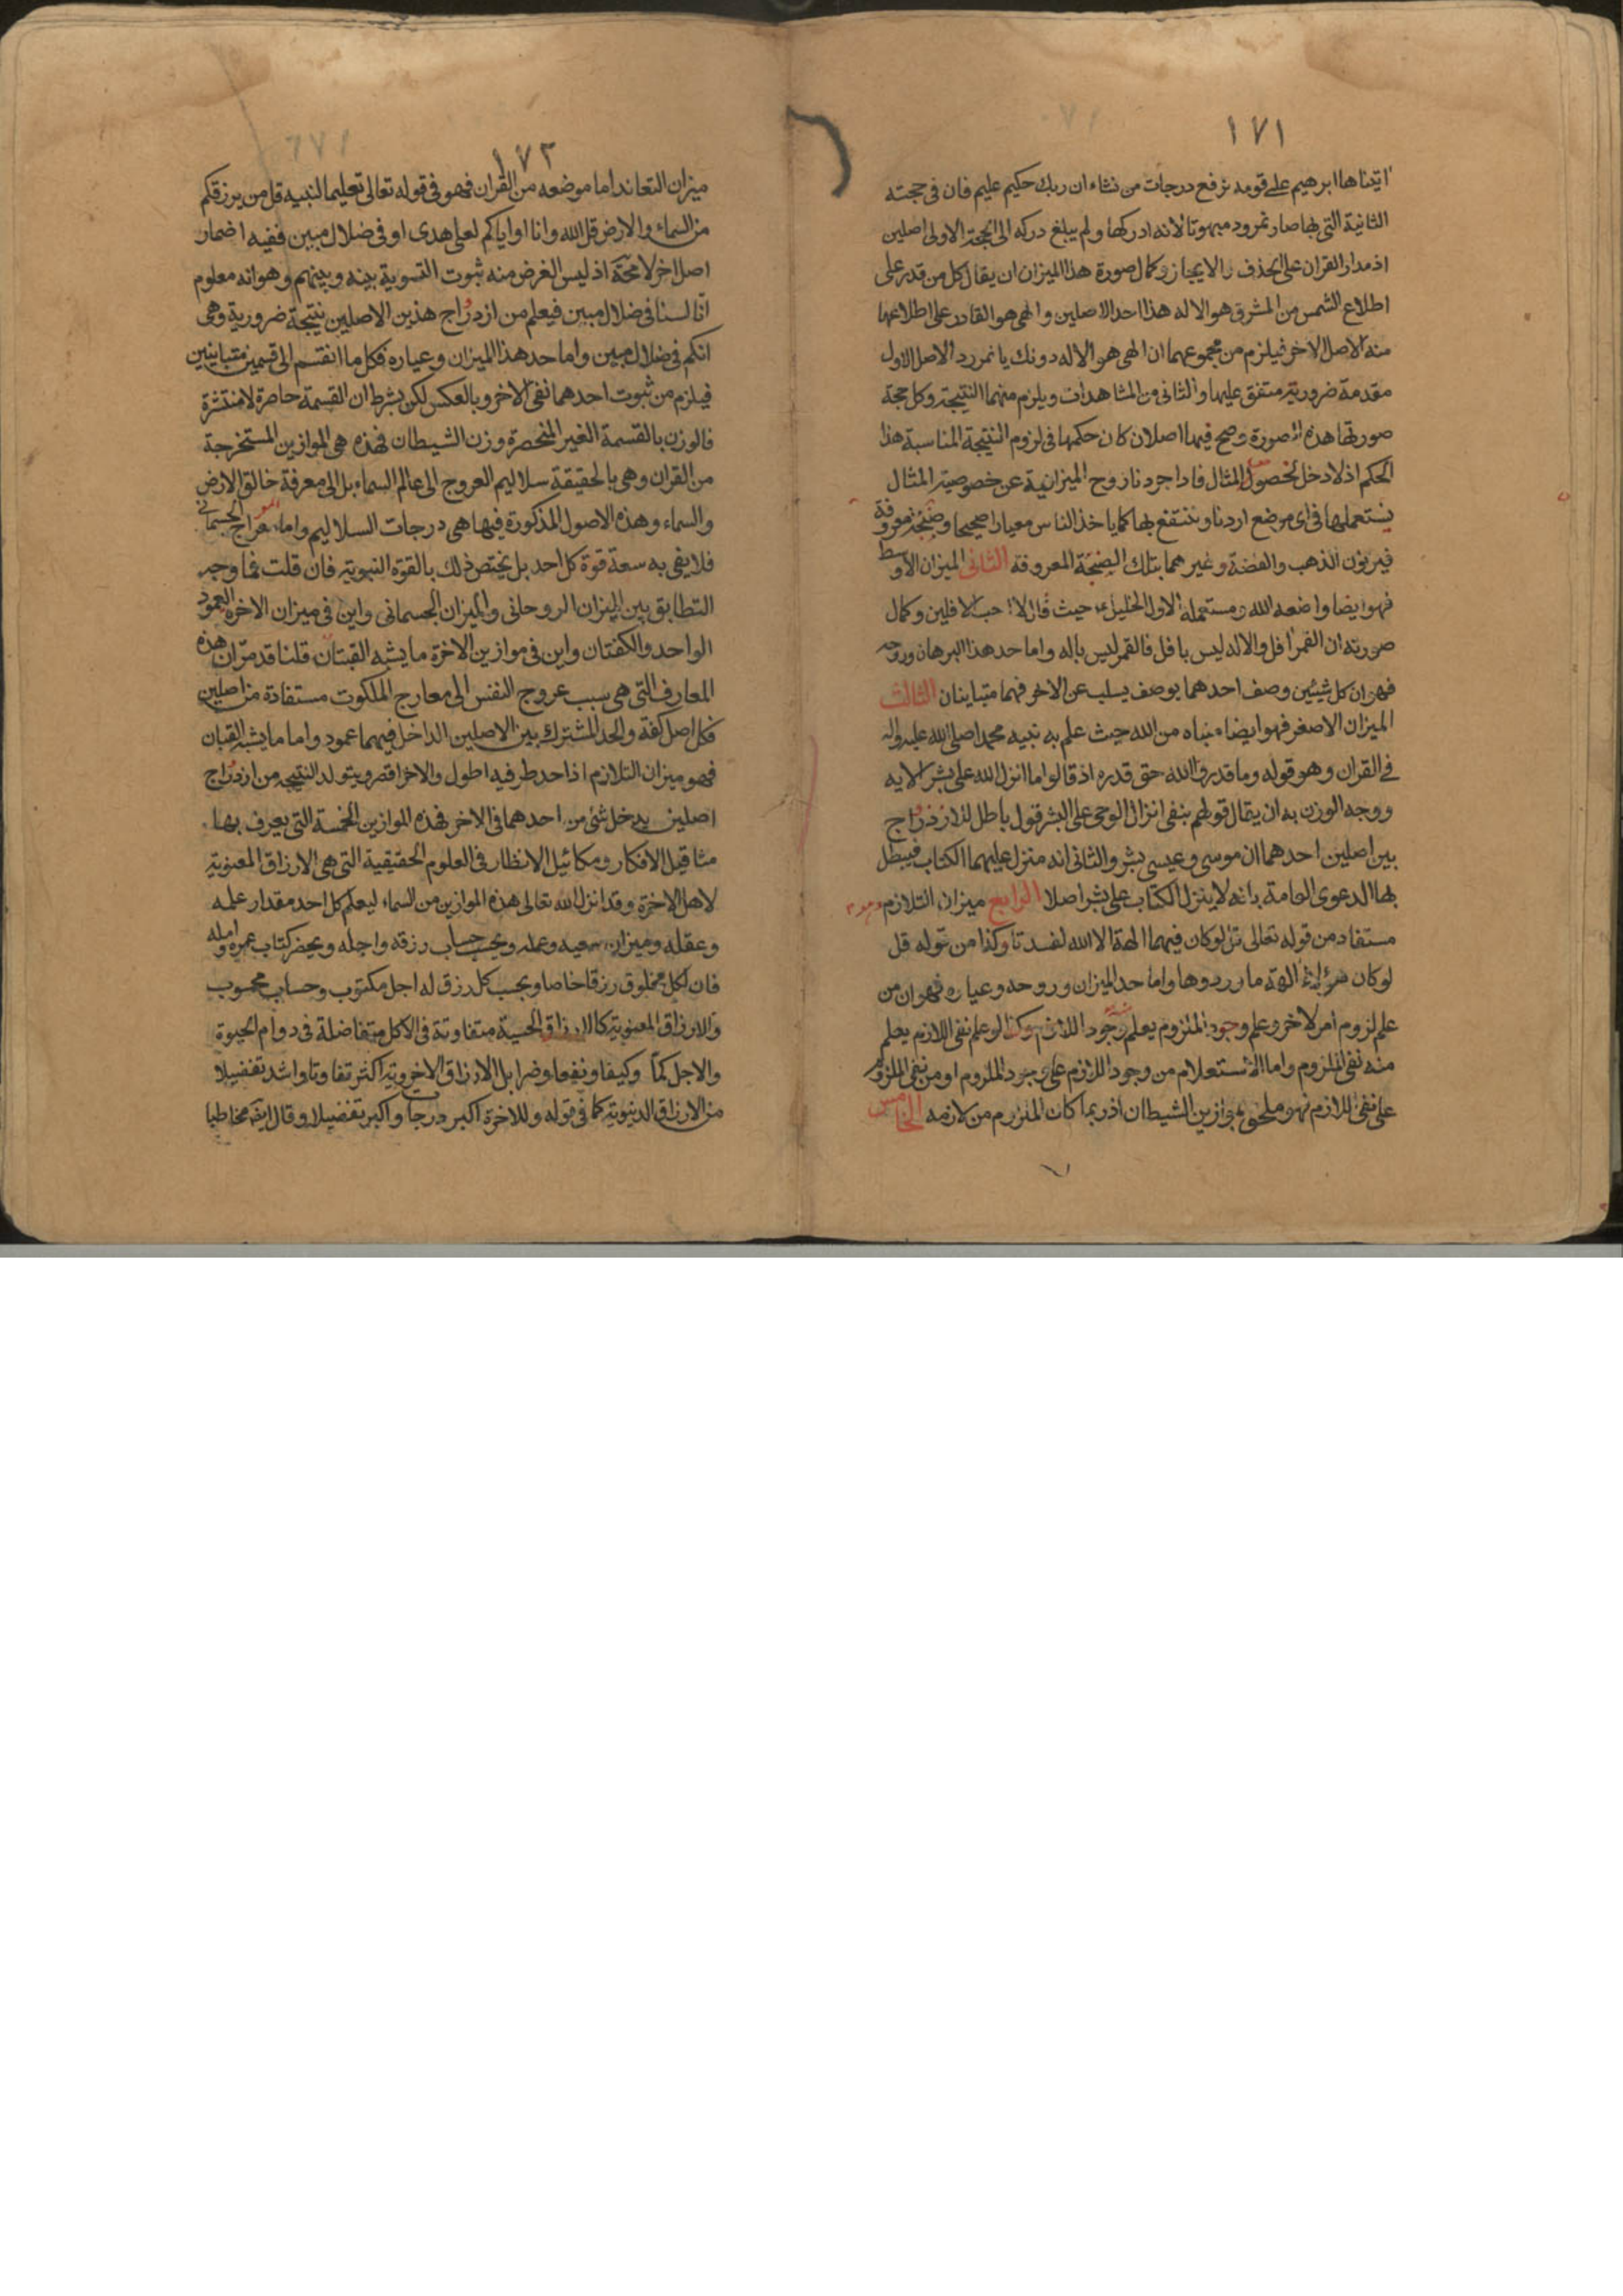 ١٧١
اتيناها ابرهيم على قومه نرفع درجات من نشاء ان ربك حكيم عليم فان فى حجته
الثانية التى بها صار نمرود مبهوتا لانه ادركها ولم يبلغ دركه الى الحجة الاولى اصلين
اذ مدار القران على الحذف والايجاز وكمال صورة هذا الميزان ان يقال كل من قدر على
اطلاع الشمس من المشرق هو الاله هذا احد الاصلين والهى هو القادر على اطلاعها
منه الاصل الاخر فيلزم من مجموعهما ان الهى هو الاله دونك يا نمرود الاصل الاول
مقدمة ضرورية متفق عليها والثانى من المشاهدات ويلزم منهما النتيجة وكل حجة
صورتها هذه الصورة وصح فيها اصلان كان حكمها فى لزوم النتيجة المناسبة هذا
الحكم اذ لا دخل لخصوص المثال فاذا جردنا روح الميزانية عن خصوصية المثال
يستعملها فى اى موضع اردنا وننتفع بها كما ياخذ الناس معيارا صحيحا وصنجة معروفة
فيزنون الذهب والفضة وغيرهما بتلك الصنجة المعروفة الثانى الميزان الاوسط
فهو ايضا واضعه الله ومستعمله الاول الخليل ع حيث قال لا احب الافلين وكمال
صورته ان القمر افل والاله ليس بافل فالقمر ليس باله واما حد هذا البرهان وروحه
فهو ان كل شيئين وصف احدهما بوصف يسلب عن الاخر فهما متباينان الثالث
الميزان الاصغر فهو ايضا مبناه من الله حيث علم به نبيه محمدا صلى الله عليه واله
فى القران وهو قوله وما قدروا الله حق قدره اذ قالوا ما انزل الله على بشر الايه
ووجه الوزن به ان يقال قولهم بنفى انزال الوحى على البشر قول باطل للازدواج
بين اصلين احدهما ان موسى وعيسى بشر والثانى انه منزل عليهما الكتاب فيبطل
بها الدعوى العامة بانه لا ينزل الكتاب على بشر اصلا الرابع ميزان التلازم وهو
مستفاد من قوله تعالى لو كان فيهما الهة الا الله لفسدتا وكذا من قوله قل
لو كان هؤلاء الهة ما وردوها واما حد الميزان وروحه وعياره فهو ان من
علم لزوم امر لاخر وعلم وجود الملزوم يعلم منه وجود اللازم وكذا لو علم نفى اللازم يعلم
منه نفى الملزوم واما الاستعلام من وجود اللازم على وجود الملزوم او من نفى الملزوم
على نفى اللازم فهو ملحق بموازين الشيطان اذ ربما كان الملزوم من لازمه الخامس
١٧٢
ميزان التعاند اما موضعه من القران فهو فى قوله تعالى تعليما لنبيه قل من يرزقكم
من السماء والارض قل الله وانا او اياكم لعلى هدى او فى ضلال مبين ففيه اضمار
اصل اخر لا محة اذ ليس الغرض منه ثبوت التسوية بينه وبينهم وهو انه معلوم
انّا لسنا فى ضلال مبين فيعلم من ازدواج هذين الاصلين نتيجة ضرورية وهى
انكم فى ضلال مبين واما حد هذا الميزان وعياره فكل ما انقسم الى قسمين متباينين
فيلزم من ثبوت احدهما نفى الاخر وبالعكس لكن بشرط ان القسمة حاصرة لا منتشرة
فالوزن بالقسمة الغير المنحصرة وزن الشيطان فهذه هى الموازين المستخرجة
من القران وهى بالحقيقة سلاليم العروج الى عالم السماء بل الى معرفة خالق الارض
والسماء وهذه الاصول المذكورة فيها هى درجات السلاليم واما معراج الجسمانى
فلا يفى به سعة قوة كل احد بل يختص ذلك بالقوة النبوية فان قلت فما وجه
التطابق بين الميزان الروحانى والميزان الجسمانى واين فى ميزان الاخرة العمود
الواحد والكفتان واين فى موازين الاخرة ما يشبه القبان قلنا قد مرّ ان هذه
المعارف التى هى سبب عروج النفس الى معارج الملكوت مستفادة من اصلين
فكل اصل كفة والحد المشترك بين الاصلين الداخل فيهما عمود واما ما يشبه القبان
فهو ميزان التلازم اذ احد طرفيه اطول والاخر اقصر ويتولد النتيجه من ازدواج
اصلين يدخل شئ من احدهما فى الاخر فهذه الموازين الخمسة التى يعرف بها
مثاقيل الافكار ومكائيل الانظار فى العلوم الحقيقية التى هى الارزاق المعنوية
لاهل الاخرة وقد انزل الله تعالى هذه الموازين من السماء ليعلم كل احد مقدار علمه
وعقله وميزان سعيه وعمله ويحسب حساب رزقه واجله ويحضر كتاب عمره وامله
فان لكل مخلوق رزقا خاصا وبحسب كل رزق له اجل مكتوب وحساب محسوب
والارزاق المعنوية كالارزاق الحسية متفاوتة فى الاكل متفاضلة فى دوام الحيوة
والاجل كمّا وكيفا ونفعا وضرا بل الارزاق الاخروية اكثر تفاوتا واشد تفضيلا
من الارزاق الدنيوية كما فى قوله وللاخرة اكبر درجات واكبر تفضيلا وقال ايضا مخاطبا